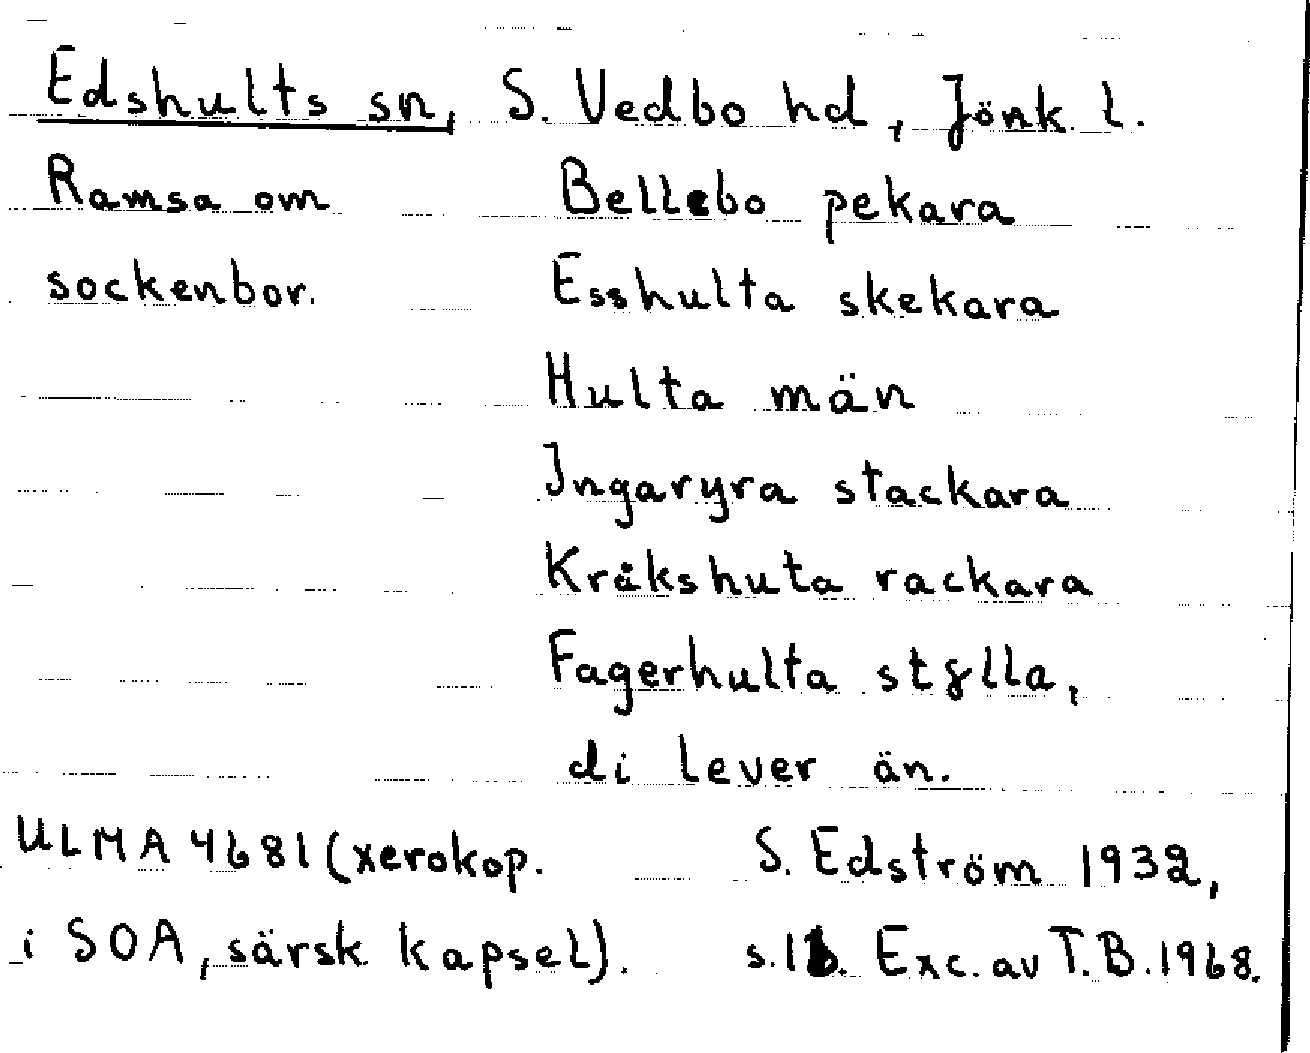 Edshults sn, S. Vedbo hd, Jönk. l.
Ramsa om Bellebo pekara
sockenbor. Esshulta skekara
Hulta män
Ingaryra stackara
Kråkshuta rackara
Fagerhulta
di lever än.
ULMA 4681 (xerokop. S. Edström 1932,
i SOA, särsk kapsel). Exc. av T.B. 1968.